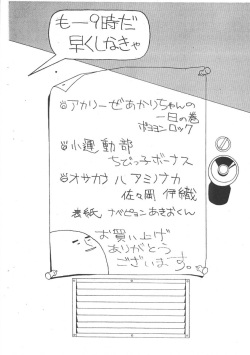 もー9時だ
早くしなきゃ
アカリーぜあかりちゃんの
一日の巻
ポヨヨンロック
小運動部
ちびっ子ボーナス
オサカナハアミノナカ
佐々岡 伊織
表紙 ナペピョンあきおくん
お買い上げ
ありがとう
ございます。